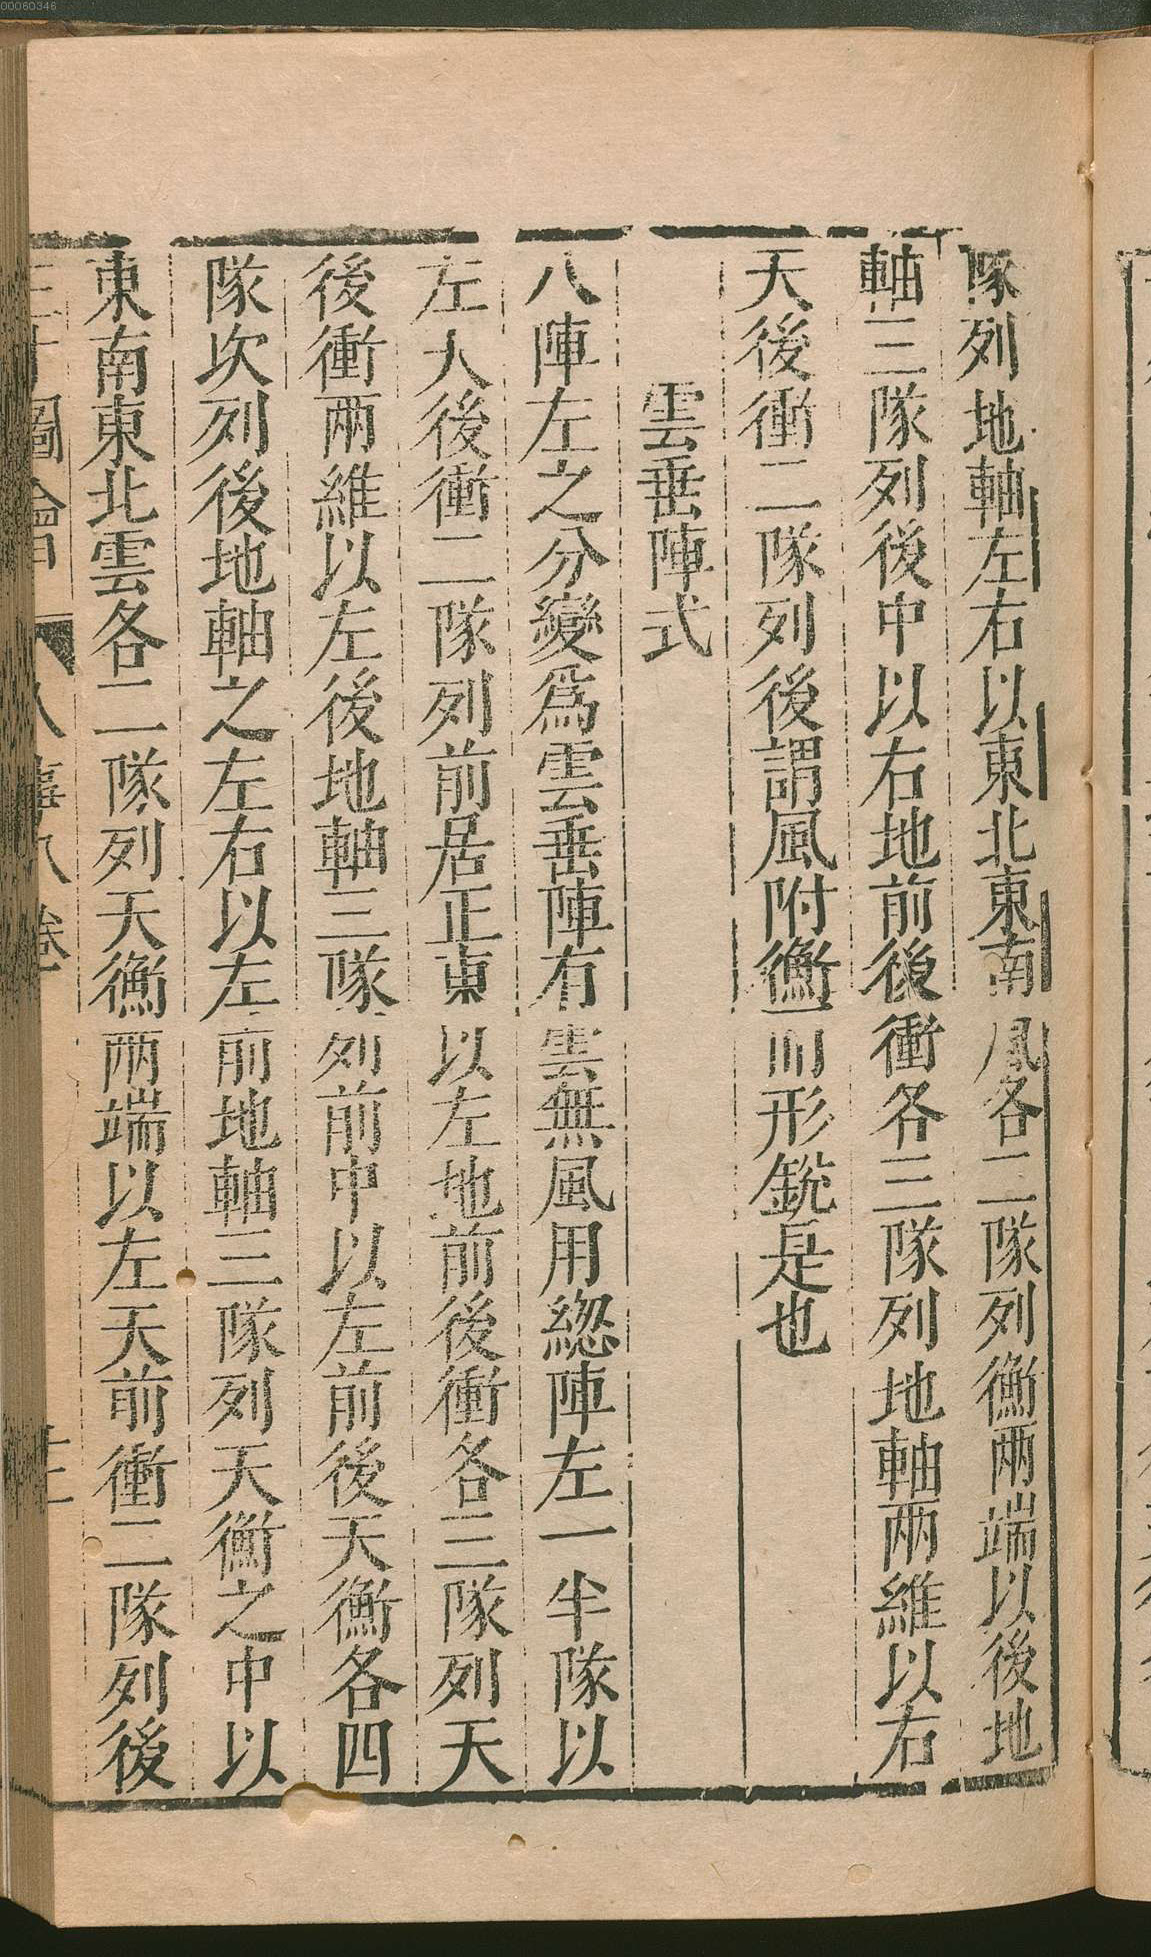 00060346
隊列地軸左右以東北東南風各二隊列衡兩端以後地
軸三隊列後中以右地前後衝各三隊列地軸兩維以右
天後衝二隊列後謂風附衡而形銳是也
雲垂陣式
八陣左之分變爲雲垂陣有雲無風用緫陣左一半隊以
左天後衝二隊列前居正東以左地前後衝各三隊列天
後衝兩維以左後地軸三隊列前中以左前後天衡各四
隊次列後地軸之左右以左前地軸三隊列天衡之中以
東南東北雲各二隊列天衡兩端以左天前衝二隊列後
圖會